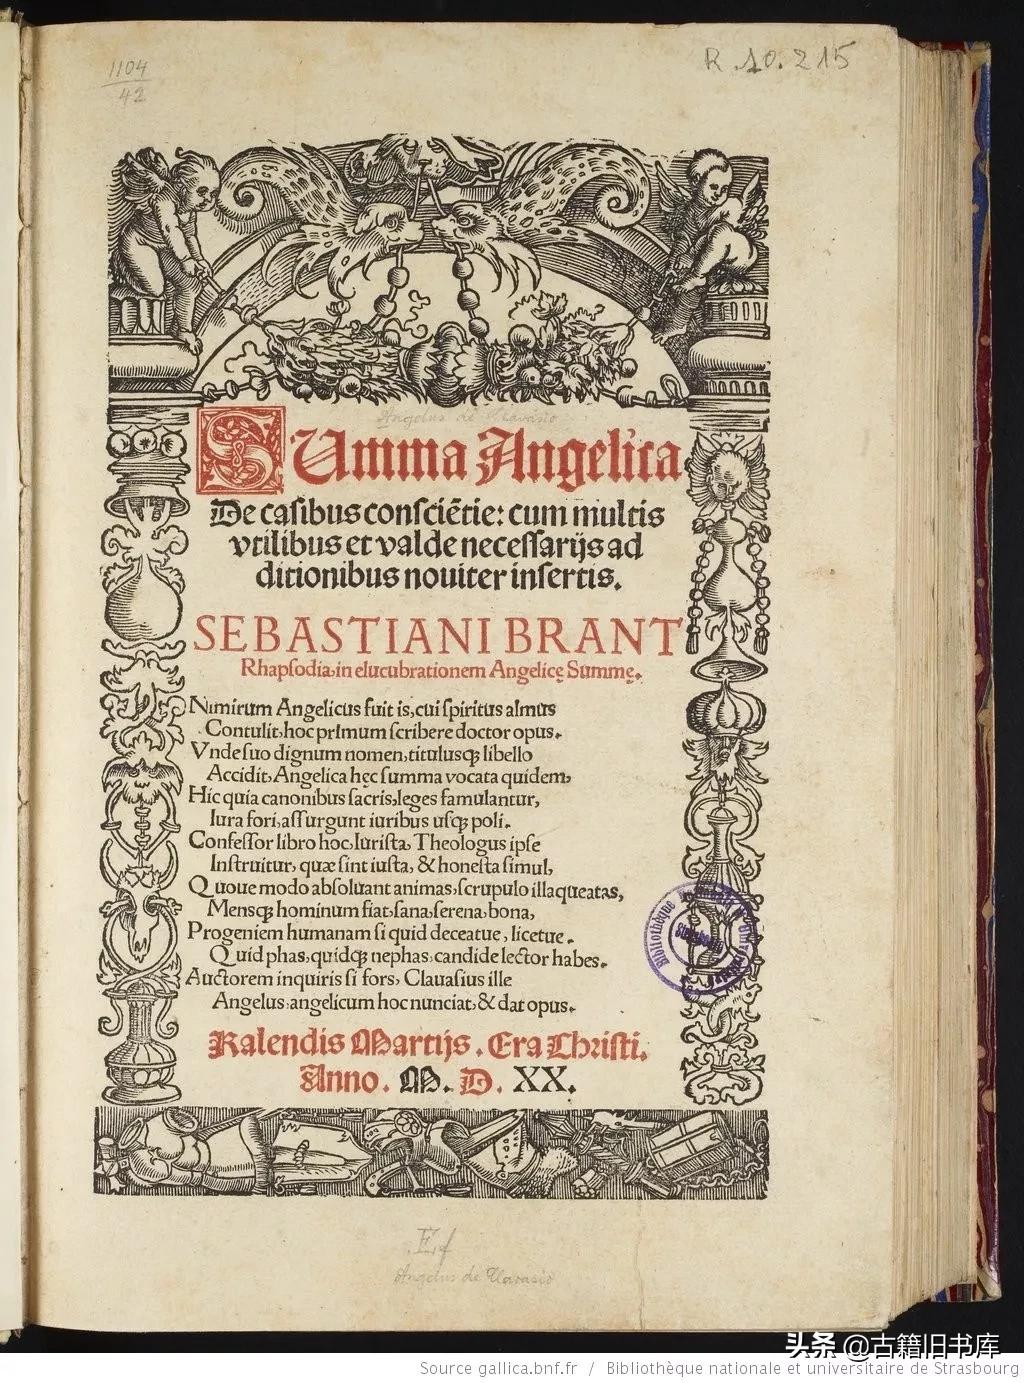 1104
42
R.10.215
Angelus de Clavasio
SUmma Angelica
De casibus consciẽtie: cum multis
vtilibus et valde necessarijs ad
ditionibus nouiter insertis.
SEBASTIANI BRANT
Rhapsodia, in elucubrationem Angelicę Summę.
Nimirum Angelicus fuit is, cui spiritus almus
Contulit, hoc primum scribere doctor opus.
Vnde suo dignum nomen, titulusqꝫ libello
Accidit, Angelica hęc summa vocata quidem,
Hic quia canonibus sacris, leges famulantur,
Iura fori, assurgunt iuribus usqꝫ poli.
Confessor libro hoc, Iurista, Theologus ipse
Instruitur, quæ sint iusta, & honesta simul,
Quoue modo absoluant animas, scrupulo illaqueatas,
Mensqꝫ hominum fiat, sana, serena, bona,
Progeniem humanam si quid deceatue, licetue.
Quid phas, quidqꝫ nephas, candide lector habes.
Auctorem inquiris si fors, Clauasius ille
Angelus, angelicum hoc nunciat, & dat opus.
Kalendis Martijs. Era Christi.
Anno. M. D. XX.
Bibliothèque
Strasbourg
Ef
Angelus de Clavasio
头条 @古籍旧书库
Source gallica.bnf.fr / Bibliothèque nationale et universitaire de Strasbourg